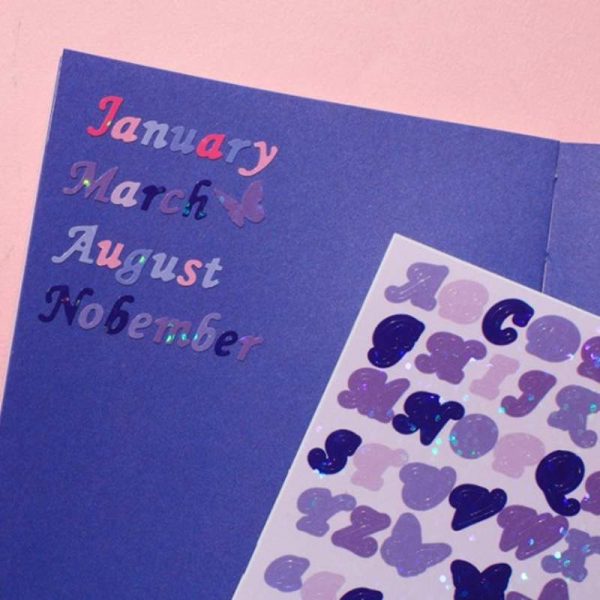 January
March
August
Nobember
A C
I J
N
S I
Z